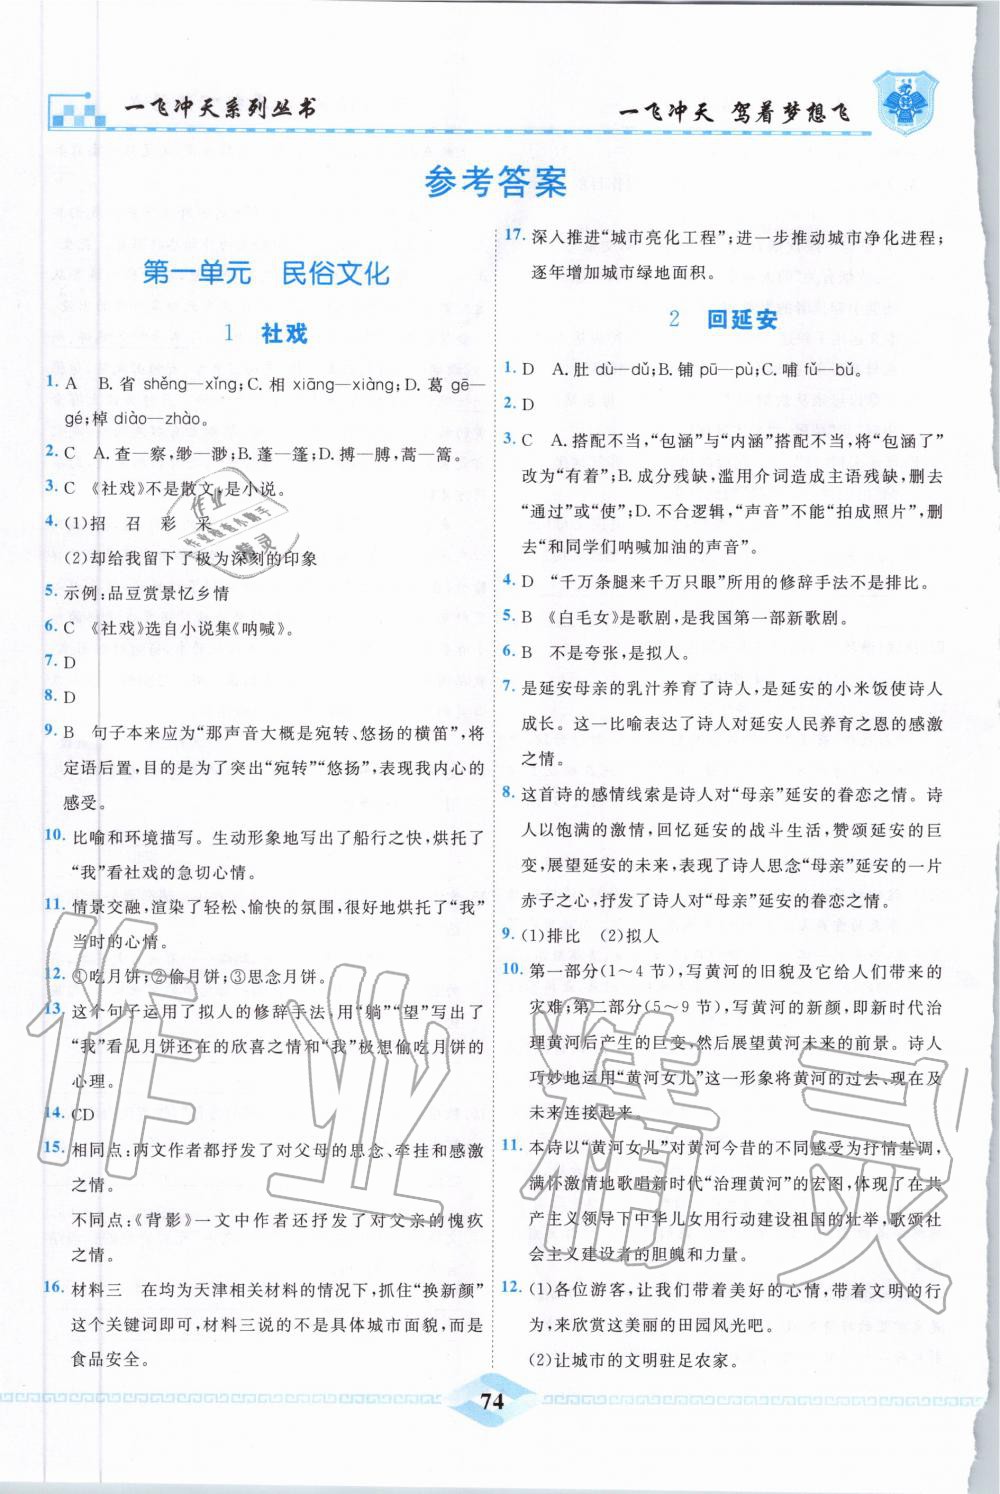 一飞冲天系列丛书
一飞冲天 驾着梦想飞
参考答案
第一单元 民俗文化
1 社戏
1. A B.省 shěng—xǐng;C.相 xiāng—xiàng;D.葛 gē—
gé;棹 diào—zhào。
2. C A.查—察,缈—渺;B.蓬—篷;D.搏—膊,蒿—篙。
3. C 《社戏》不是散文,是小说。
4. (1)招 召 彩 采
(2)却给我留下了极为深刻的印象
5. 示例:品豆赏景忆乡情
6. C 《社戏》选自小说集《呐喊》。
7. D
8. D
9. B 句子本来应为“那声音大概是宛转、悠扬的横笛”,将
定语后置,目的是为了突出“宛转”“悠扬”,表现我内心的
感受。
10. 比喻和环境描写。生动形象地写出了船行之快,烘托了
“我”看社戏的急切心情。
11. 情景交融,渲染了轻松、愉快的氛围,很好地烘托了“我”
当时的心情。
12. ①吃月饼;②偷月饼;③思念月饼。
13. 这个句子运用了拟人的修辞手法,用“躺”“望”写出了
“我”看见月饼还在的欣喜之情和“我”极想偷吃月饼的
心理。
14. CD
15. 相同点:两文作者都抒发了对父母的思念、牵挂和感激
之情。
不同点:《背影》一文中作者还抒发了对父亲的愧疚
之情。
16. 材料三 在均为天津相关材料的情况下,抓住“换新颜”
这个关键词即可,材料三说的不是具体城市面貌,而是
食品安全。
17. 深入推进“城市亮化工程”;进一步推动城市净化进程;
逐年增加城市绿地面积。
2 回延安
1. D A.肚 dù—dǔ;B.铺 pū—pù;C.哺 fǔ—bǔ。
2. D
3. C A.搭配不当,“包涵”与“内涵”搭配不当,将“包涵了”
改为“有着”;B.成分残缺,滥用介词造成主语残缺,删去
“通过”或“使”;D.不合逻辑,“声音”不能“拍成照片”,删
去“和同学们呐喊加油的声音”。
4. D “千万条腿来千万只眼”所用的修辞手法不是排比。
5. B 《白毛女》是歌剧,是我国第一部新歌剧。
6. B 不是夸张,是拟人。
7. 是延安母亲的乳汁养育了诗人,是延安的小米饭使诗人
成长。这一比喻表达了诗人对延安人民养育之恩的感激
之情。
8. 这首诗的感情线索是诗人对“母亲”延安的眷恋之情。诗
人以饱满的激情,回忆延安的战斗生活,赞颂延安的巨
变,展望延安的未来,表现了诗人思念“母亲”延安的一片
赤子之心,抒发了诗人对“母亲”延安的眷恋之情。
9. (1)排比 (2)拟人
10. 第一部分(1～4节),写黄河的旧貌及它给人们带来的
灾难;第二部分(5～9节),写黄河的新颜,即新时代治
理黄河后产生的巨变,然后展望黄河未来的前景。诗人
巧妙地运用“黄河女儿”这一形象将黄河的过去、现在及
未来连接起来。
11. 本诗以“黄河女儿”对黄河今昔的不同感受为抒情基调,
满怀激情地歌唱新时代“治理黄河”的宏图,体现了在共
产主义领导下中华儿女用行动建设祖国的壮举,歌颂社
会主义建设者的胆魄和力量。
12. (1)各位游客,让我们带着美好的心情,带着文明的行
为,来欣赏这美丽的田园风光吧。
(2)让城市的文明驻足农家。
74
作业精灵